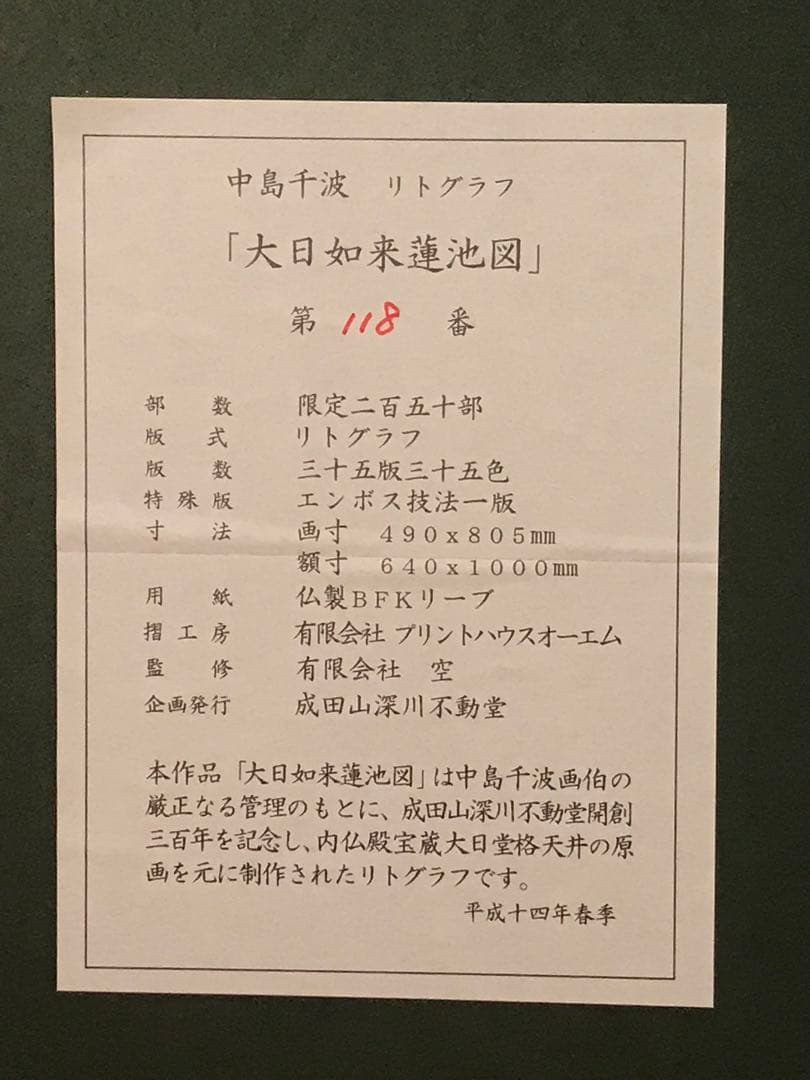 中島千波　リトグラフ
「大日如来蓮池図」
第 118 番
部数　限定二百五十部
版式　リトグラフ
版数　三十五版三十五色
特殊版　エンボス技法一版
寸法　画寸　４９０ｘ８０５㎜
額寸　６４０ｘ１０００㎜
用紙　仏製ＢＦＫリーブ
摺工房　有限会社 プリントハウスオーエム
監修　有限会社　空
企画発行　成田山深川不動堂
本作品「大日如来蓮池図」は中島千波画伯の
厳正なる管理のもとに、成田山深川不動堂開創
三百年を記念し、内仏殿宝蔵大日堂格天井の原
画を元に制作されたリトグラフです。
平成十四年春季